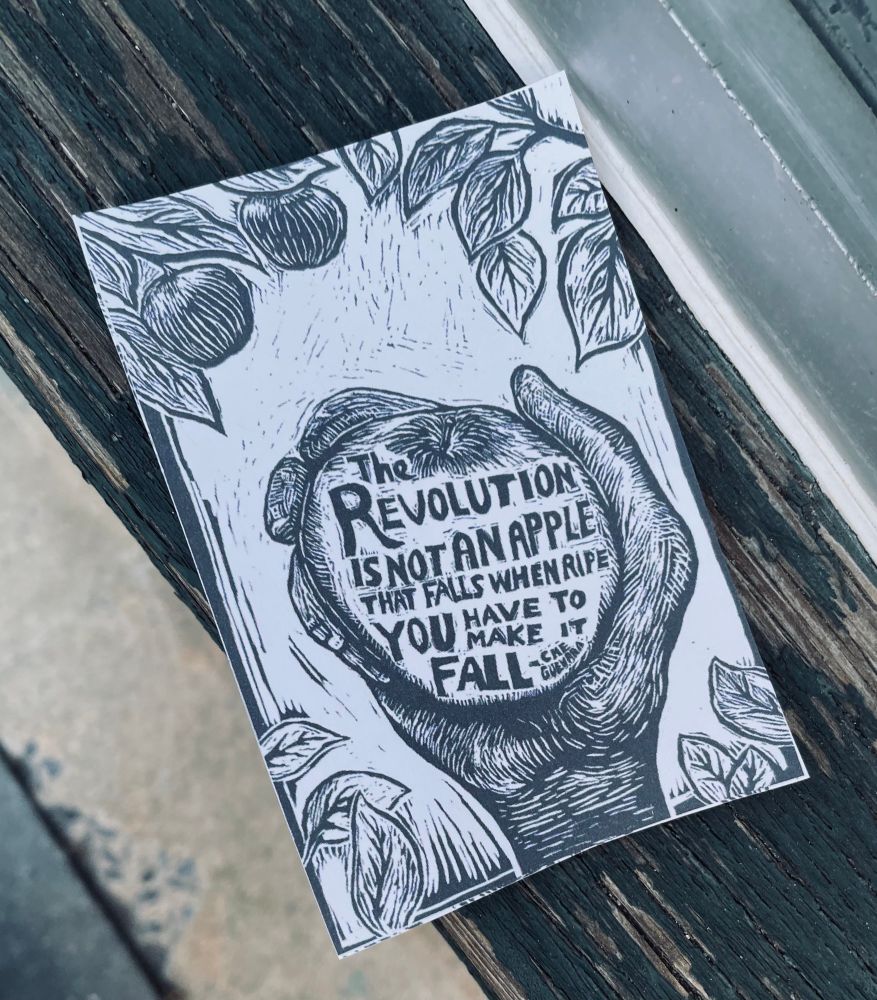 The
REVOLUTION
IS NOT AN APPLE
THAT FALLS WHEN RIPE
YOU HAVE TO
MAKE IT
FALL
-CHE
GUEVARA